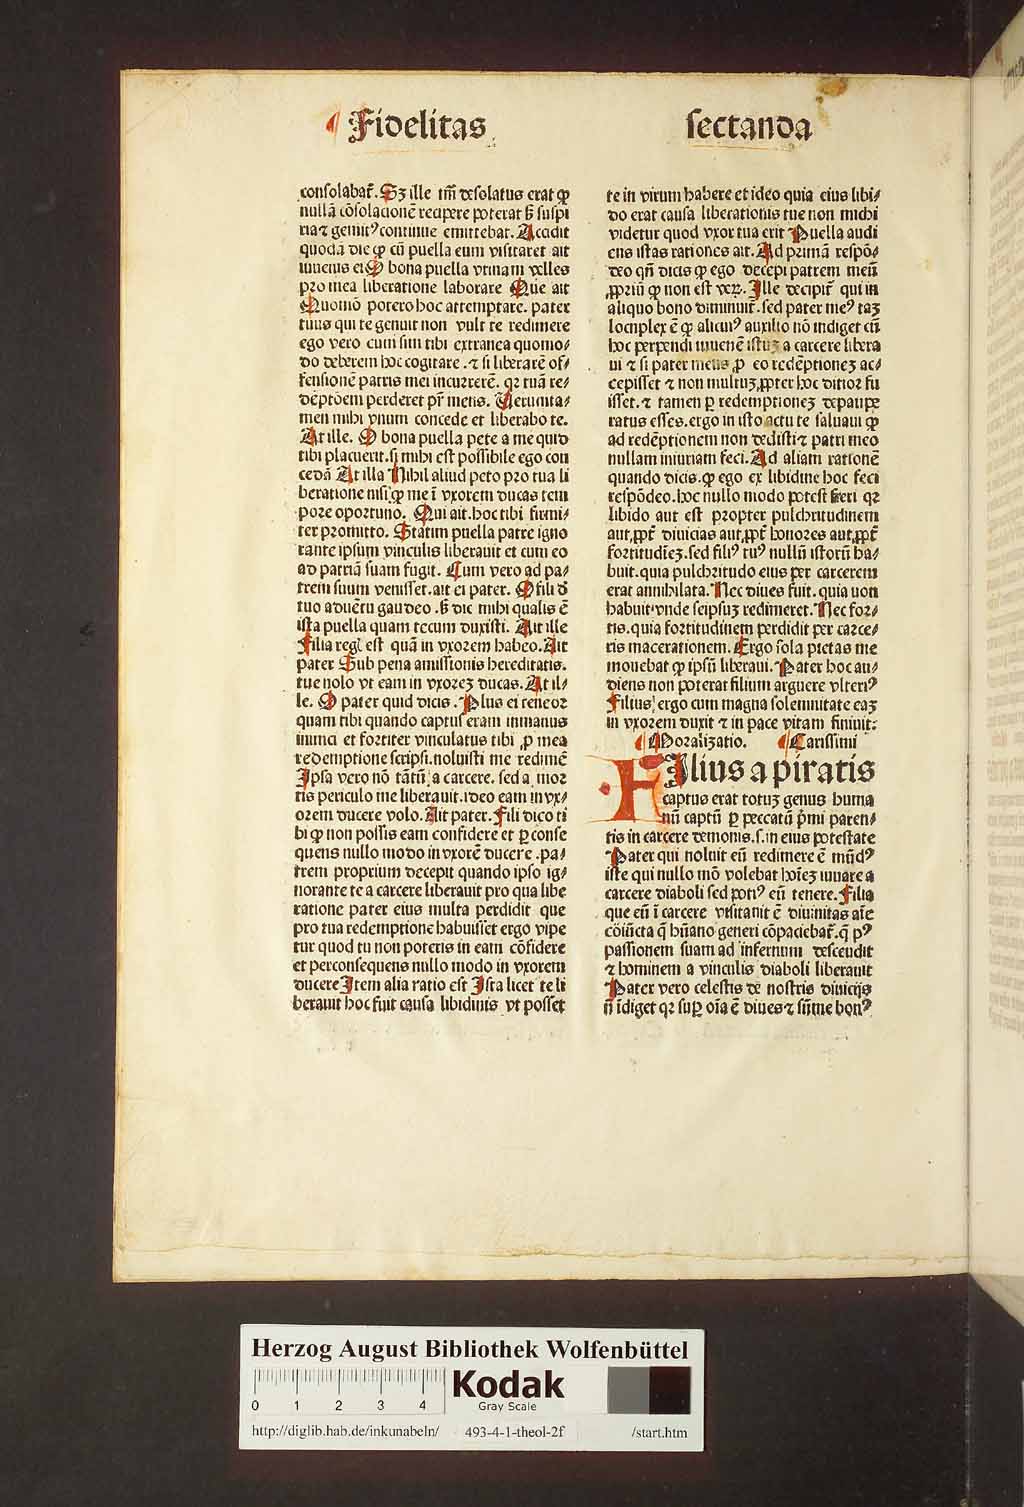 ¶ Fidelitas
sectanda
consolabat᷑. Sꝫ ille tm̄ desolatus erat ꝙ
nullā cōsolacionē recipere poterat sꝫ suspi
ria⁊ gemitꝰ continue emittebat. Accidit
quodā die ꝙ cū puella eum visitaret ait
iuuenis ei O bona puella vtinam velles
pro mea liberatione laborare Que ait
Quomō potero hoc attemptare. pater
tuus qui te genuit non vult te redimere
ego vero cum sim tibi extranea quomo⸗
do deberem hoc cogitare .⁊ si liberarē of⸗
fensionē patris mei incurrerē. qꝛ tuā re⸗
dēptōem perderet pr̄ meus. Uerumta⸗
men mihi vnum concede et liberabo te.
At ille. O bona puella pete a me quid
tibi placuerit. si mihi est possibile ego con
cedā At illa Nihil aliud peto pro tua li
beratione nisi ꝙ me ī vxorem ducas tem
pore oportuno. Qui ait. hoc tibi firmi⸗
ter promitto. Statim puella patre igno
rante ipsum vinculis liberauit et cum eo
ad patriā suam fugit. Cum vero ad pa⸗
trem suum venisset. ait ei pater. O fili d̄
tuo aduētu gaudeo .sꝫ dic mihi qualis ē
ista puella quam tecum duxisti. Ait ille
Filia regꝭ est quā in vxorem habeo. Ait
pater Sub pena amissionis hereditatis.
tue nolo vt eam in vxoreꝫ ducas. At il⸗
le. O pater quid dicis . Plus ei teneor
quam tibi quando captus eram inmanus
inimici et fortiter vinculatus tibi ꝓ mea
redemptione scripsi. noluisti me redimē
Ipsa vero nō tātū a carcere. sed a mor
tis periculo me liberauit. ideo eam in vx⸗
orem ducere volo. Ait pater. Fili dico ti
bi ꝙ non possis eam confidere et ꝑ conse
quens nullo modo in vxorē ducere . pa⸗
trem proprium decepit quando ipso ig⸗
norante te a carcere liberauit pro qua libe
ratione pater eius multa perdidit que
pro tua redemptione habuisset ergo vipe
tur quod tu non poteris in eam cōfidere
et perconsequens nullo modo in vxorem
ducere Item alia ratio est Ista licet te li
berauit hoc fuit causa libidinis vt posset
te in virum habere et ideo quia eius libi⸗
do erat causa liberationis tue non michi
videtur quod vxor tua erit Puella audi
ens istas rationes ait. Ad primā respō⸗
deo qn̄ dicis ꝙ ego decepi patrem meū
ꝓpriū ꝙ non est veꝝ. Ille decipit᷑ qui in
aliquo bono diminuit᷑. sed pater meꝰ taꝫ
locuplex ē ꝙ alicuiꝰ auxilio nō indiget cū
hoc perpendi iuuenē istuꝫ a carcere libera
ui ⁊ si pater meus ꝓ eo redēptioneꝫ ac⸗
cepisset ⁊ non multuꝫ ꝓpter hoc ditior fu
isset. ⁊ tamen ꝑ redemptioneꝫ depaupe
ratus esses. ergo in isto actu te saluaui ꝙ
ad redēptionem non dedisti ⁊ patri meo
nullam iniuriam feci. Ad aliam rationē
quando dicis. ꝙ ego ex libidine hoc feci
respōdeo. hoc nullo modo potest fieri qꝛ
libido aut est propter pulchritudinem
aut ꝓpt᷑ diuicias aut ꝓpt᷑ honores aut ꝓpt᷑
fortitudīeꝫ. sed filiꝰ tuꝰ nullū istorū ha⸗
buit. quia pulchritudo eius per carcerem
erat annihilata. Nec diues fuit. quia non
habuit. vnde seipsuꝫ redimeret. Nec for⸗
tis. quia fortitudinem perdidit per carce⸗
ris macerationem. Ergo sola pietas me
mouebat ꝙ ipsū liberaui. Pater hoc au⸗
diens non poterat filium arguere vlteriꝰ
Filius ergo cum magna solemnitate eaꝫ
in vxorem duxit ⁊ in pace vitam finiuit:
¶ Moralizatio. ¶ Carissimi
FIlius a piratis
captus erat totuꝫ genus huma
nū captū ꝑ peccatū p̄mi paren⸗
tis in carcere demonis .s. in eius potestate
Pater qui noluit eū redimere ē mūdꝰ
iste qui nullo mō volebat hoīeꝫ iuuare a
carcere diaboli sed potiꝰ eū tenere. Filia
que eū ī carcere visitauit ē diuinitas aīe
cōiūcta q̄ hūano generi cōpaciebat᷑. q̄ pꝰ
passionem suam ad infernum descendit
⁊ hominem a vinculis diaboli liberauit
Pater vero celestis de nostris diuicijs
nō īdiget qꝛ suꝑ oīa ē diues ⁊ sūme bonꝰ
Herzog August Bibliothek Wolfenbüttel
0 1 2 3 4
Kodak
Gray Scale
http://diglib.hab.de/inkunabeln/ 493-4-1-theol-2f /start.htm